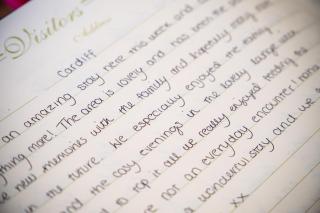 Visitors'
Address
Cardiff
an amazing stay here this week and
ything more! The area is lovely and has been the
e new memories with the family and hopefully many more
in the future. We especially enjoyed the eating
and the cosy evenings in the lovely large
to top it all we really enjoyed feeding the
are not an everyday encounter!
a wonderful stay and we
xx